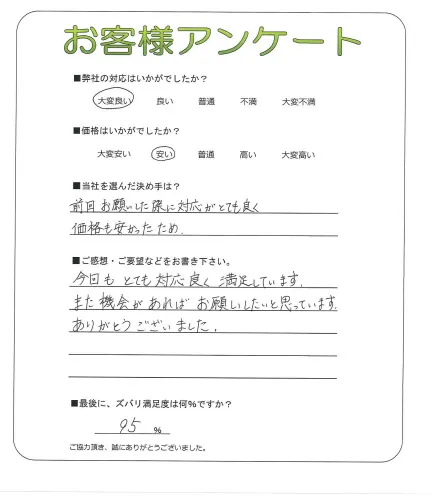 お客様アンケート
■弊社の対応はいかがでしたか？
大変良い 良い 普通 不満 大変不満
■価格はいかがでしたか？
大変安い 安い 普通 高い 大変高い
■当社を選んだ決め手は？
前回お願いした際に対応がとても良く
価格も安かったため.
■ご感想・ご要望などをお書き下さい。
今回も とても対応良く 満足しています.
また機会があれば お願いしたいと思っています.
ありがとうございました.
■最後に、ズバリ満足度は何%ですか？
95 %
ご協力頂き、誠にありがとうございました。